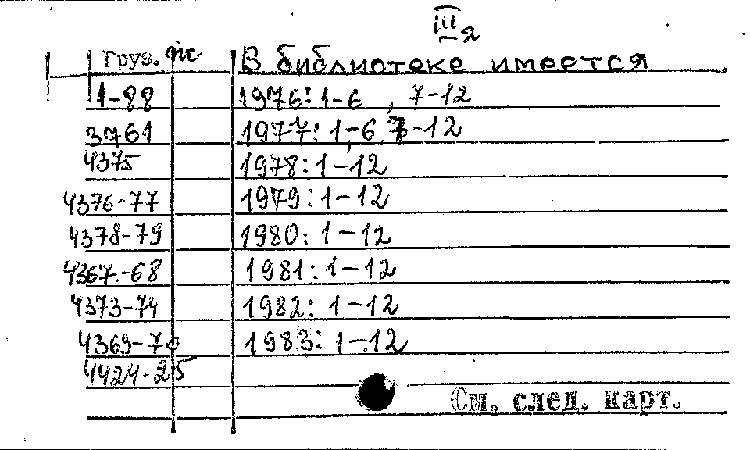 III я
Груз. В библиотеке имеется
1-88 1976: 1-6, 7-12
3761 1977: 1-6, 7-12
4375 1978: 1-12
4376-77 1979: 1-12
4378-79 1980: 1-12
4367-68 1981: 1-12
4373-74 1982: 1-12
4369-70 1983: 1-12
4424-25
См. след. карт.